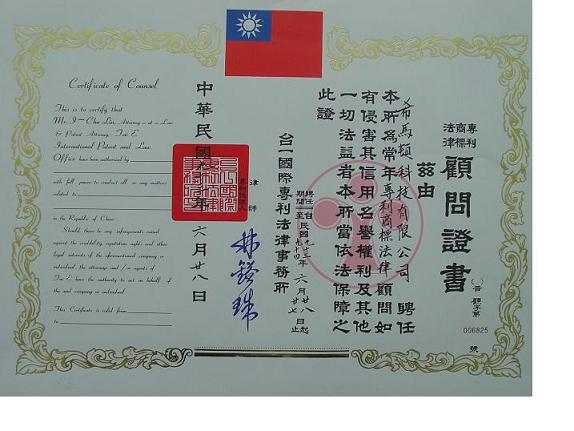 專利
商標
法律
顧問證書
006825
號
茲由
希馬頓科技有限公司 聘任
本所為常年專利商標法律顧問如
有侵害其信用名譽權利及其他
一切法益者本所當依法保障之
此證
聘任
期間
六月廿八日起
六月廿七日止
台一國際專利法律事務所
律師
中華民國
年六月廿八日
Certificate of Counsel
This is to certify that
Mr. I-Cha Lin, Attorney-at-Law
& Patent Attorney, Tai E
International Patent and Law
Office have been authorized by
with full power to conduct all or any matters
related to
in the Republic of China.
Should there be any infringement raised
against the credibility, reputation, rights and other
legal interests of the aforementioned company or
individual, the attorney and / or agents of
Tai E have the authority to act on behalf of the
said company or individual.
This Certificate is valid from
to